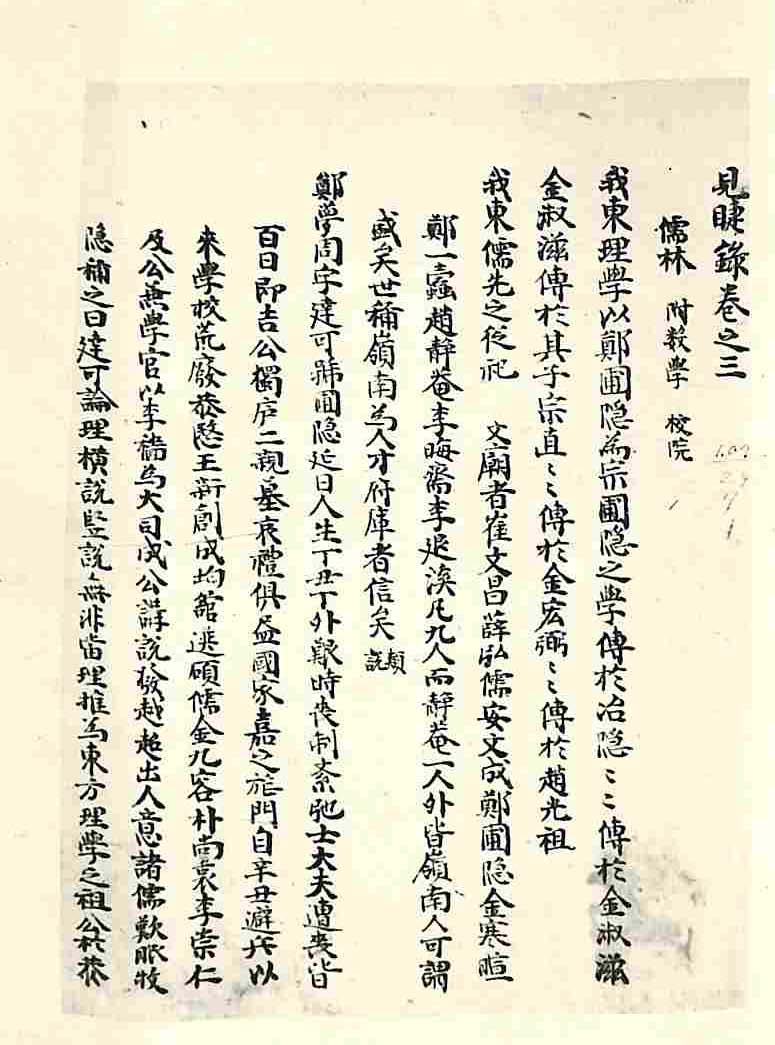 見睫錄卷之三
儒林 附敎學 校院
我東理學以鄭圃隐為宗圃隐之學傳於冶隐〻〻傳於金淑滋
金淑滋傳於其子宗直〻〻傳於金宏弼〻〻傳於趙光祖
我東儒先之從祀 文廟者崔文昌薛弘儒安文成鄭圃隐金寒暄
鄭一蠹趙靜菴李晦齋李退溪凡九人而靜菴一人外皆嶺南人可謂
盛矣世稱嶺南為人才府庫者信矣 類說
鄭夢周字達可號圃隐延日人生丁丑丁外艱時喪制紊弛士大夫遭喪皆
百日即吉公獨庐二親墓哀禮俱盡國家嘉之旌門自辛丑避兵以
来學校荒廢恭愍王新創成均舘選碩儒金九容朴尚衷李崇仁
及公兼學官以李穡為大司成公講說發越超出人意諸儒歎服牧
隐稱之曰達可論理橫說竪說無非當理推為東方理學之祖公於恭